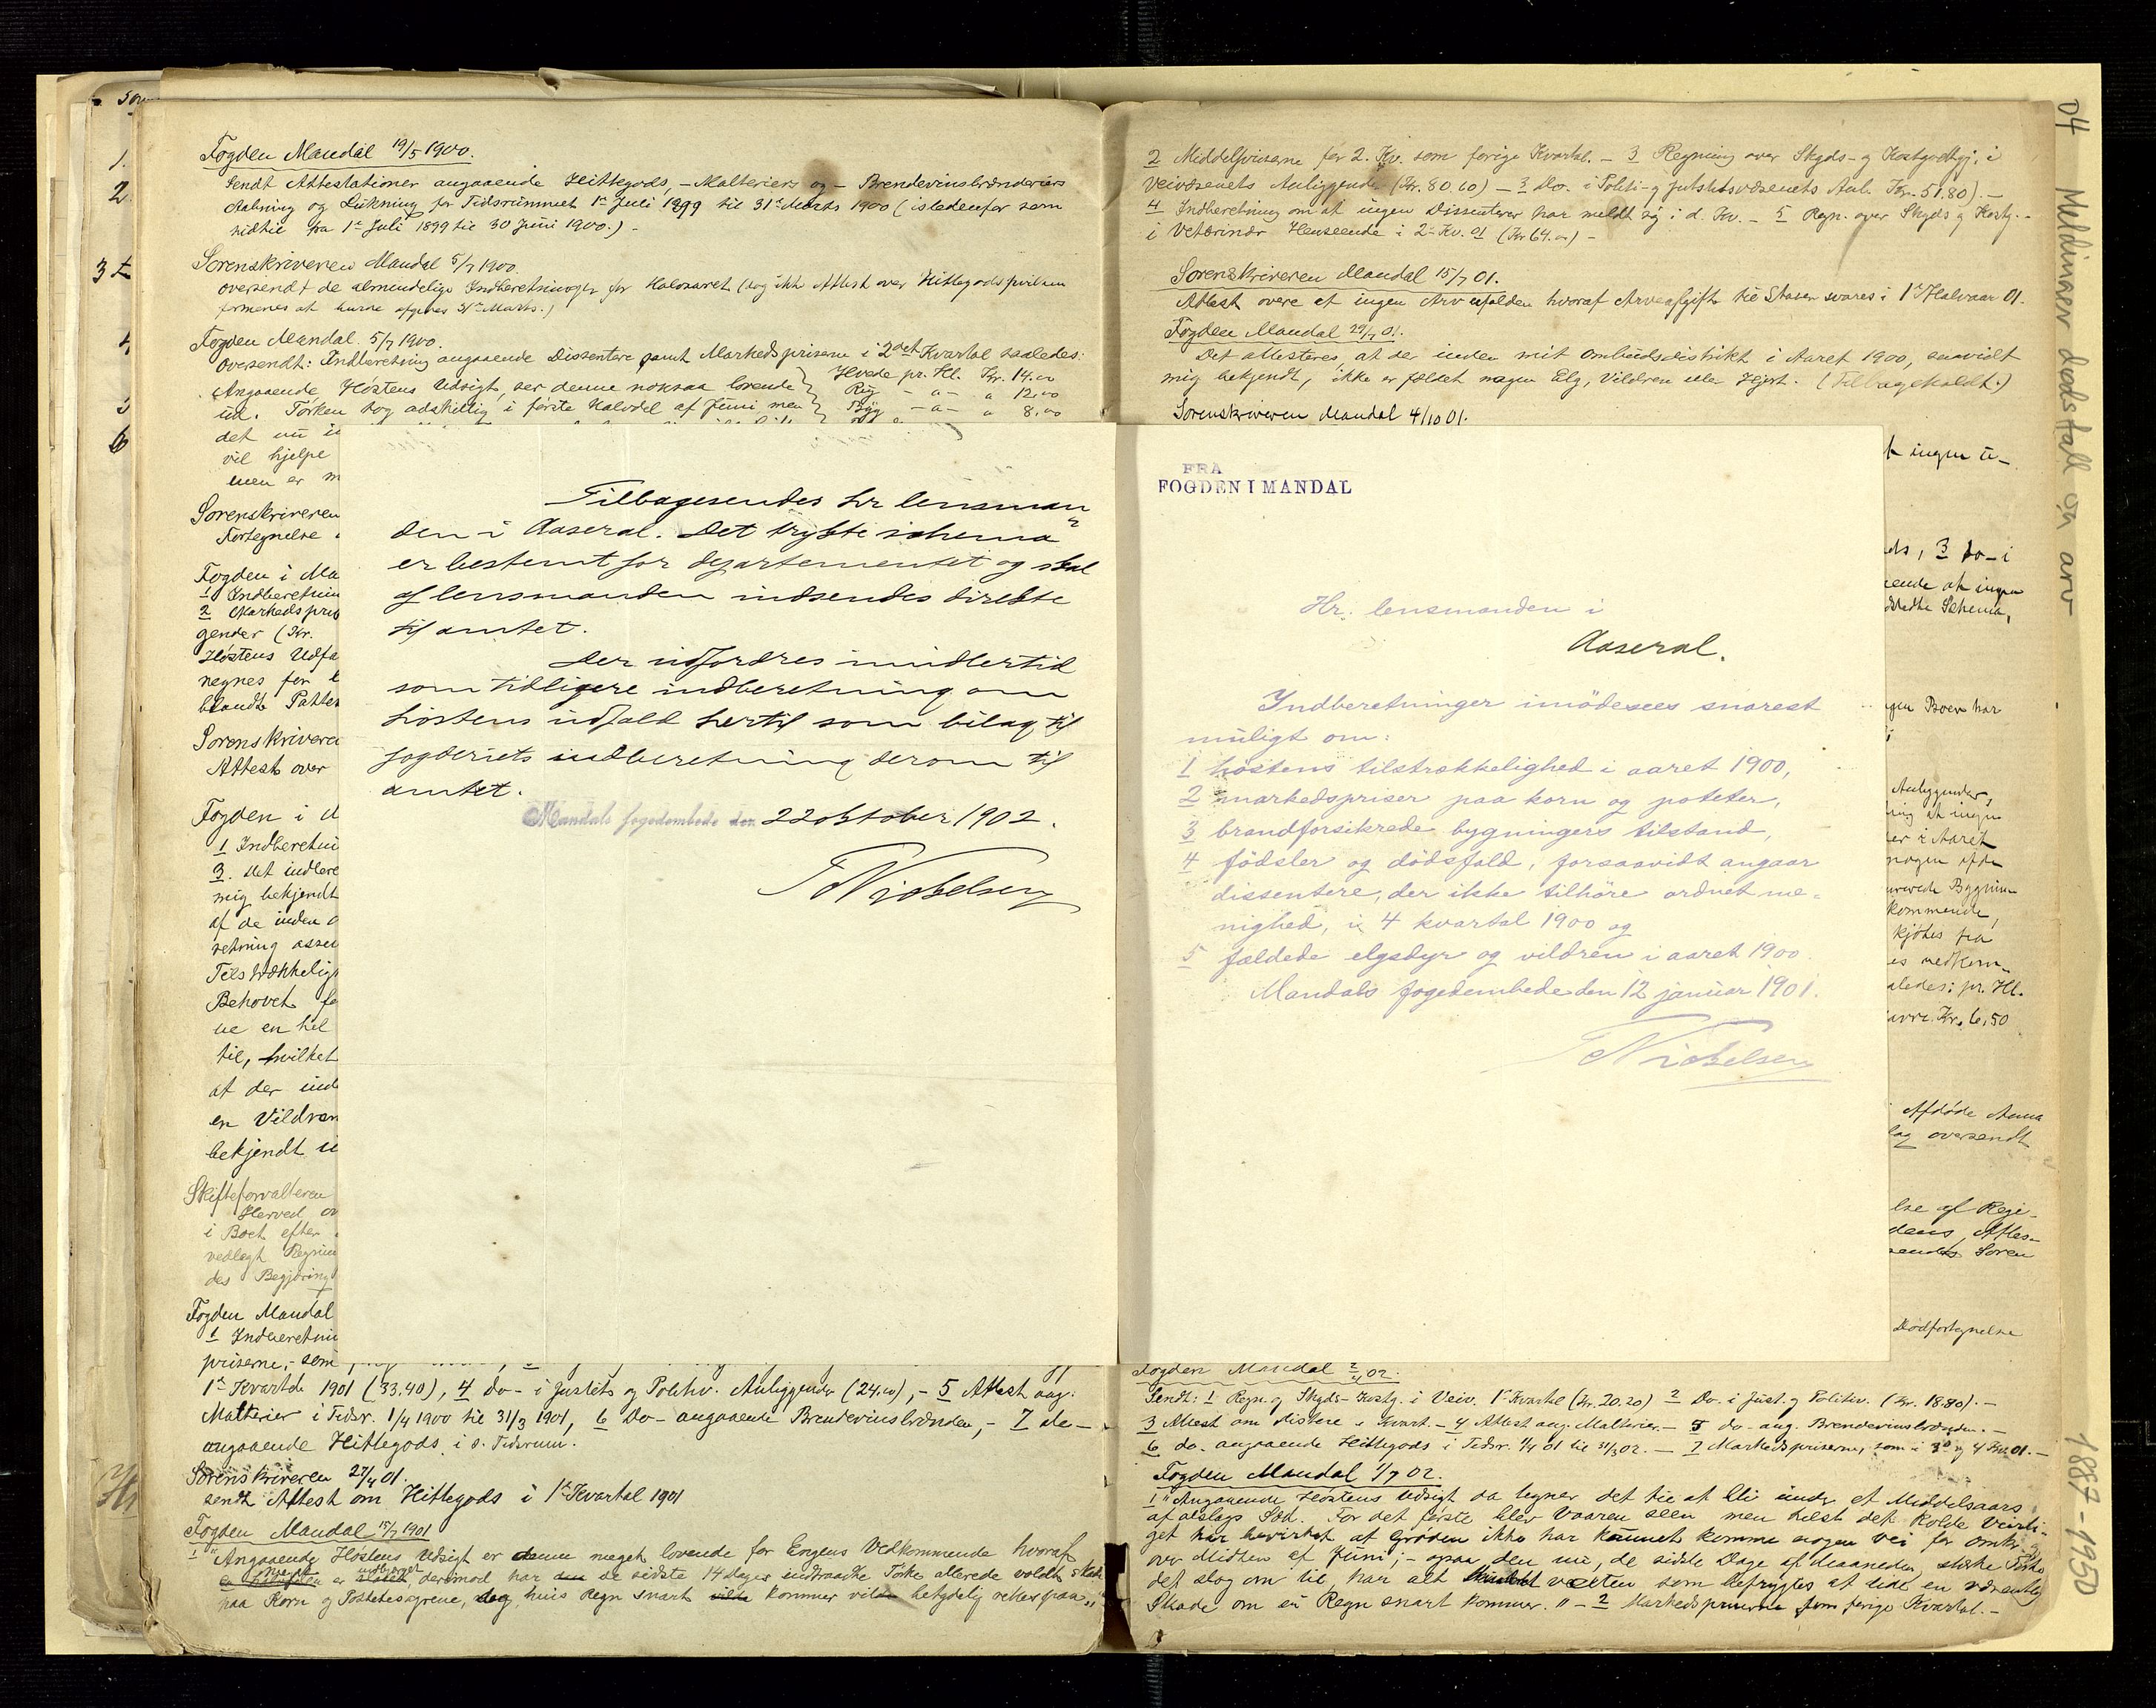 Fogden Mandal 19/5 1900.
Sendt Attestationer angaaende Hittegods, – Malteriers og – Brendevinsbrænderiers
Aabning og Lukning for Tidsrummet 1ste Juli 1899 til 31te Marts 1900 (istedenfor som
hidtil fra 1ste Juli 1899 til 30 Juni 1900.) –
Sorenskriveren Mandal 5/7 1900.
oversendt de almendelige Indberetninger for Halvaaret (dog ikke Attest over Hittegods
formenes at burde afgives 31te Marts.)
Fogden Mandal. 5/7 1900.
oversendt: Indberetning angaaende Dissentere samt Markedspriserne i 2det Kvartal saaledes:
Angaaende Høstens Udsigt, ser denne noksaa lovende
Hvede pr. Hl. Kr. 14.00
Rug " – " 12,00
ud. Tørken tog adskillig i første Halvdel af Juni men
Byg – " – " 8,00
det nu
vil hjelpe
men er
Sorenskriveren
Fortegnelse
Fogden i Ma
1 Indberetnin
2 Markedspris
gender (Kr.
Høstens Udfa
negnes for
blandt Pattes
Sorenskrivere
Attest over
Fogden i
1 Indberetni
3. Det indbere
mig bekjendt
af de inden
retning
Tilstrækkelig
Behovet fo
ne en hel
til, hvilket
at der ind
en Vildren
bekjendt
Skifteforvalteren
Herved ov
i Boet efter
vedlagt Regnin
des Begjæring
Fogden Mandal
1 Indberetni
priserne, – som
Tilbagesendes hr lensman
den i Aaseral. Det trykte schema
er bestemt for departementet og skal
af lensmanden indsendes direkte
til amtet.
Der udfordres imidlertid
som tidligere indberetning om
høstens udfald hertil som bilag til
fogderiets indberetning derom til
amtet.
Mandals fogedembede den 22 oktober 1902.
TNickelsen
1ste Kvartal 1901 (33.40), 4 do – i Justits og Politiv. Anliggender (24.00), – 5 Attest ang.
Malterier i Tidsr. 1/4 1900 til 31/3 1901, 6 Do – angaaende Brendevinsbrænden, – 7 do –
angaaende Hittegods i s. Tidsrum.
Sorenskriveren 27/4 01.
sendt Attest om Hittegods i 1ste Kvartal 1901
Fogden Mandal 15/7 1901
1 "Angaaende Høstens Udsigt er denne meget lovende for Engens Vedkommende hvoraf
er indbjerget, derimod har de sidste 14 dages indtraadte Tørke allerede voldt Skade
paa Korn og Potetesagrene, dog, hvis Regn snart kommer vil betydelig rettes paa."
2 Middelpriserne for 2. Kv. som forige Kvartal. – 3 Regning over Skyds- og Kostgodtgj. i
Veivæsenets Anliggende (Kr. 80.60) – 3 Do. i Politi- og Justitsvæsenets Anl. Kr. 51.80) –
4 Indberetning om at ingen Dissenterer har meldt sig i d. Kv. – 5 Regn. over Skyds og Kostg. –
i Veterinær Henseende i 2. Kv. 01 (Kr 64.00) –
Sorenskriveren Mandal 15/7 01.
Attest over at ingen Arv er falden hvoraf Arveafgift til Staten svares i 1ste Halvaar 01.
Fogden Mandal 29/7 01.
Det attesteres, at der inden mit Ombudsdistrikt i Aaret 1900, saavidt
mig bekjendt, ikke er fældet nogen Elg, Vildren eller Hjort. (Tilbagekaldt.)
Sorenskriveren Mandal 4/10 01.
ingen ti-
ds, 3 Do – i
ende at ingen
Schema,
gen Boer har
Anliggender,
ing at ingen
er i Aaret
nogen
Bygnin
kommende,
kjøbes fra
es vedkom-
aledes: pr. Hl.
Kr. 6,50
Afdøde Anna
lag oversendt
lse af Regi-
dens, Attes-
sendes Soren
Dødfortegnelse
FRA
FOGDEN I MANDAL
Hr. lensmanden i
Aaseral.
Indberetninger imødesees snarest
muligt om:
1 høstens tilstrækkelighed i aaret 1900,
2 markedspriser paa korn og poteter,
3 brandforsikrede bygningers tilstand,
4 fødsler og dødsfald, forsaavidt angaar
dissentere, der ikke tilhøre ordnet me-
nighed, i 4 kvartal 1900 og
5 fældede elgsdyr og vildren i aaret 1900.
Mandals fogedembede den 12 januar 1901.
TNickelsen
Fogden Mandal 2/4 02.
Sendt: 1 Regn. o. Skyds- Kostg. i Veiv. 1ste Kvartal (Kr. 20.20) 2 Do. i Just. og Politiv. (Kr. 18.80). –
3 Attest om distere 1 Kvart. – 4 Attest ang. Malterier. – 5 do – ang. Brendevinsbrænden. –
6 do – angaaende Hittegods i Tidsr. 1/4 01 til 31/3 02. – 7 Markedspriserne, som i 3de og 4 Kv. 01. –
Fogden Mandal 1/7 02.
1 "Angaaende Høstens Udsigt da tegner det til at bli under et Middelsaars
af alslags Sæd. For det første blev Vaaren seen men helst det kolde Veirli-
get har bevirket at Grøden ikke har kunnet komme nogen Vei før omkr.
over Midten af Juni; – opaa den nu, de sidste Dage af Maaneden, stærke Tørke
det slog om til, har alt væxten, som befrygtes at lide en væsentlig
Skade om ei Regn snart kommer." – 2 Markedspriserne som forige Kvartal. –
04 Meldinger dødsfall og arv
1887-1950